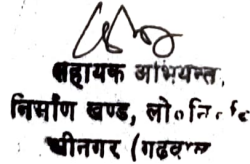 सहायक अभियन्ता,
निर्माण खण्ड, लो० नि०
श्रीनगर (गढवाल